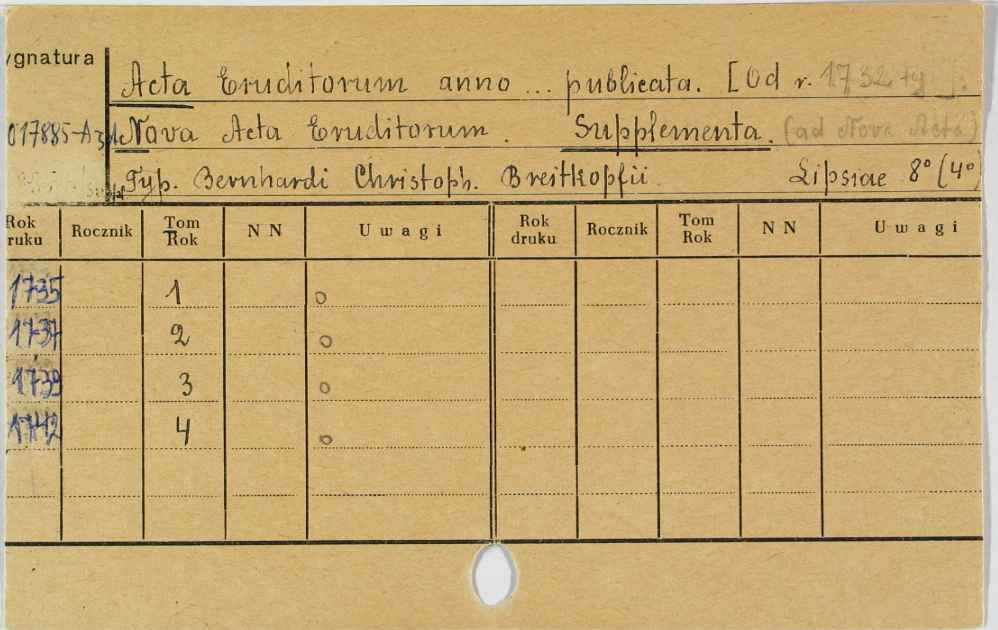 ygnatura
Acta Eruditorum anno ... publicata. [Od r. 1732 ty
017885-A
Nova Acta Eruditorum. Supplementa. (ad Nova Acta)
Typ. Bernhardi Christoph. Breitkopfii. Lipsiae 8° (4°)
Rok ruku Rocznik Tom Rok N N Uwagi Rok druku Rocznik Tom Rok N N Uwagi
1735 1 o
1737 2 o
1739 3 o
1742 4 o